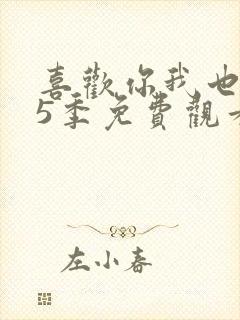 喜歡你我也
5季免費觀
左小春